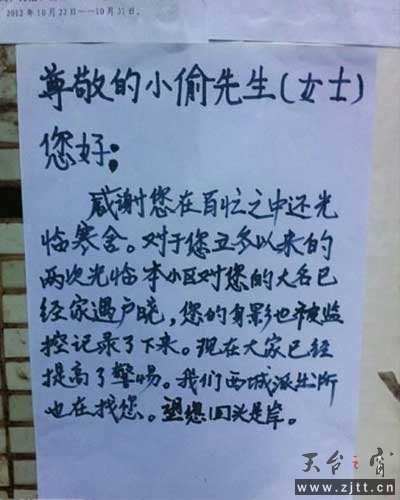 2012年10月22日——10月31日。
尊敬的小偷先生(女士)
您好:
感谢您在百忙之中还光
临寒舍。对于您多以来的
两次光临本小区对您的大名已
经家遇户晓,您的身影也被监
控记录了下来。现在大家已经
提高了警惕。我们西城派出所
也在找您。望您回头是岸。
天台之窗
www.zjtt.cn